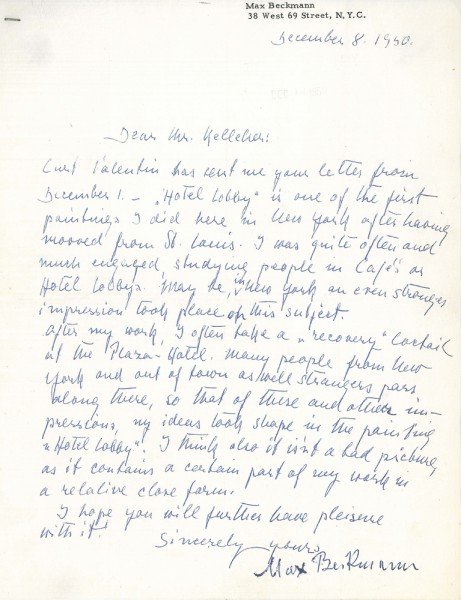 Max Beckmann
38 West 69 Street, N.Y.C.
December 8. 1950.
Dear Mr. Kelleher:
Curt Valentin has sent me your letter from
December 1. – „Hotel Lobby" is one of the first
paintings I did here in New York after having
mooved from St. Louis. I was quite often and
much engaged, studying people in Cafés or
Hotel Lobbys. May be, in New York an even stronger
impression took place on this subject.
After my work, I often take a „recovery" Coctail
at the Plaza-Hotel. Many people from New
York and out of town as well strangers pass
along there, so that of these and others im-
pressions, my ideas took shape in the painting
„Hotel Lobby". I think also it isn't a bad picture,
as it contains a certain part of my work in
a relative close form.
I hope you will further have pleisure
with it!
Sincerely yours
Max Beckmann